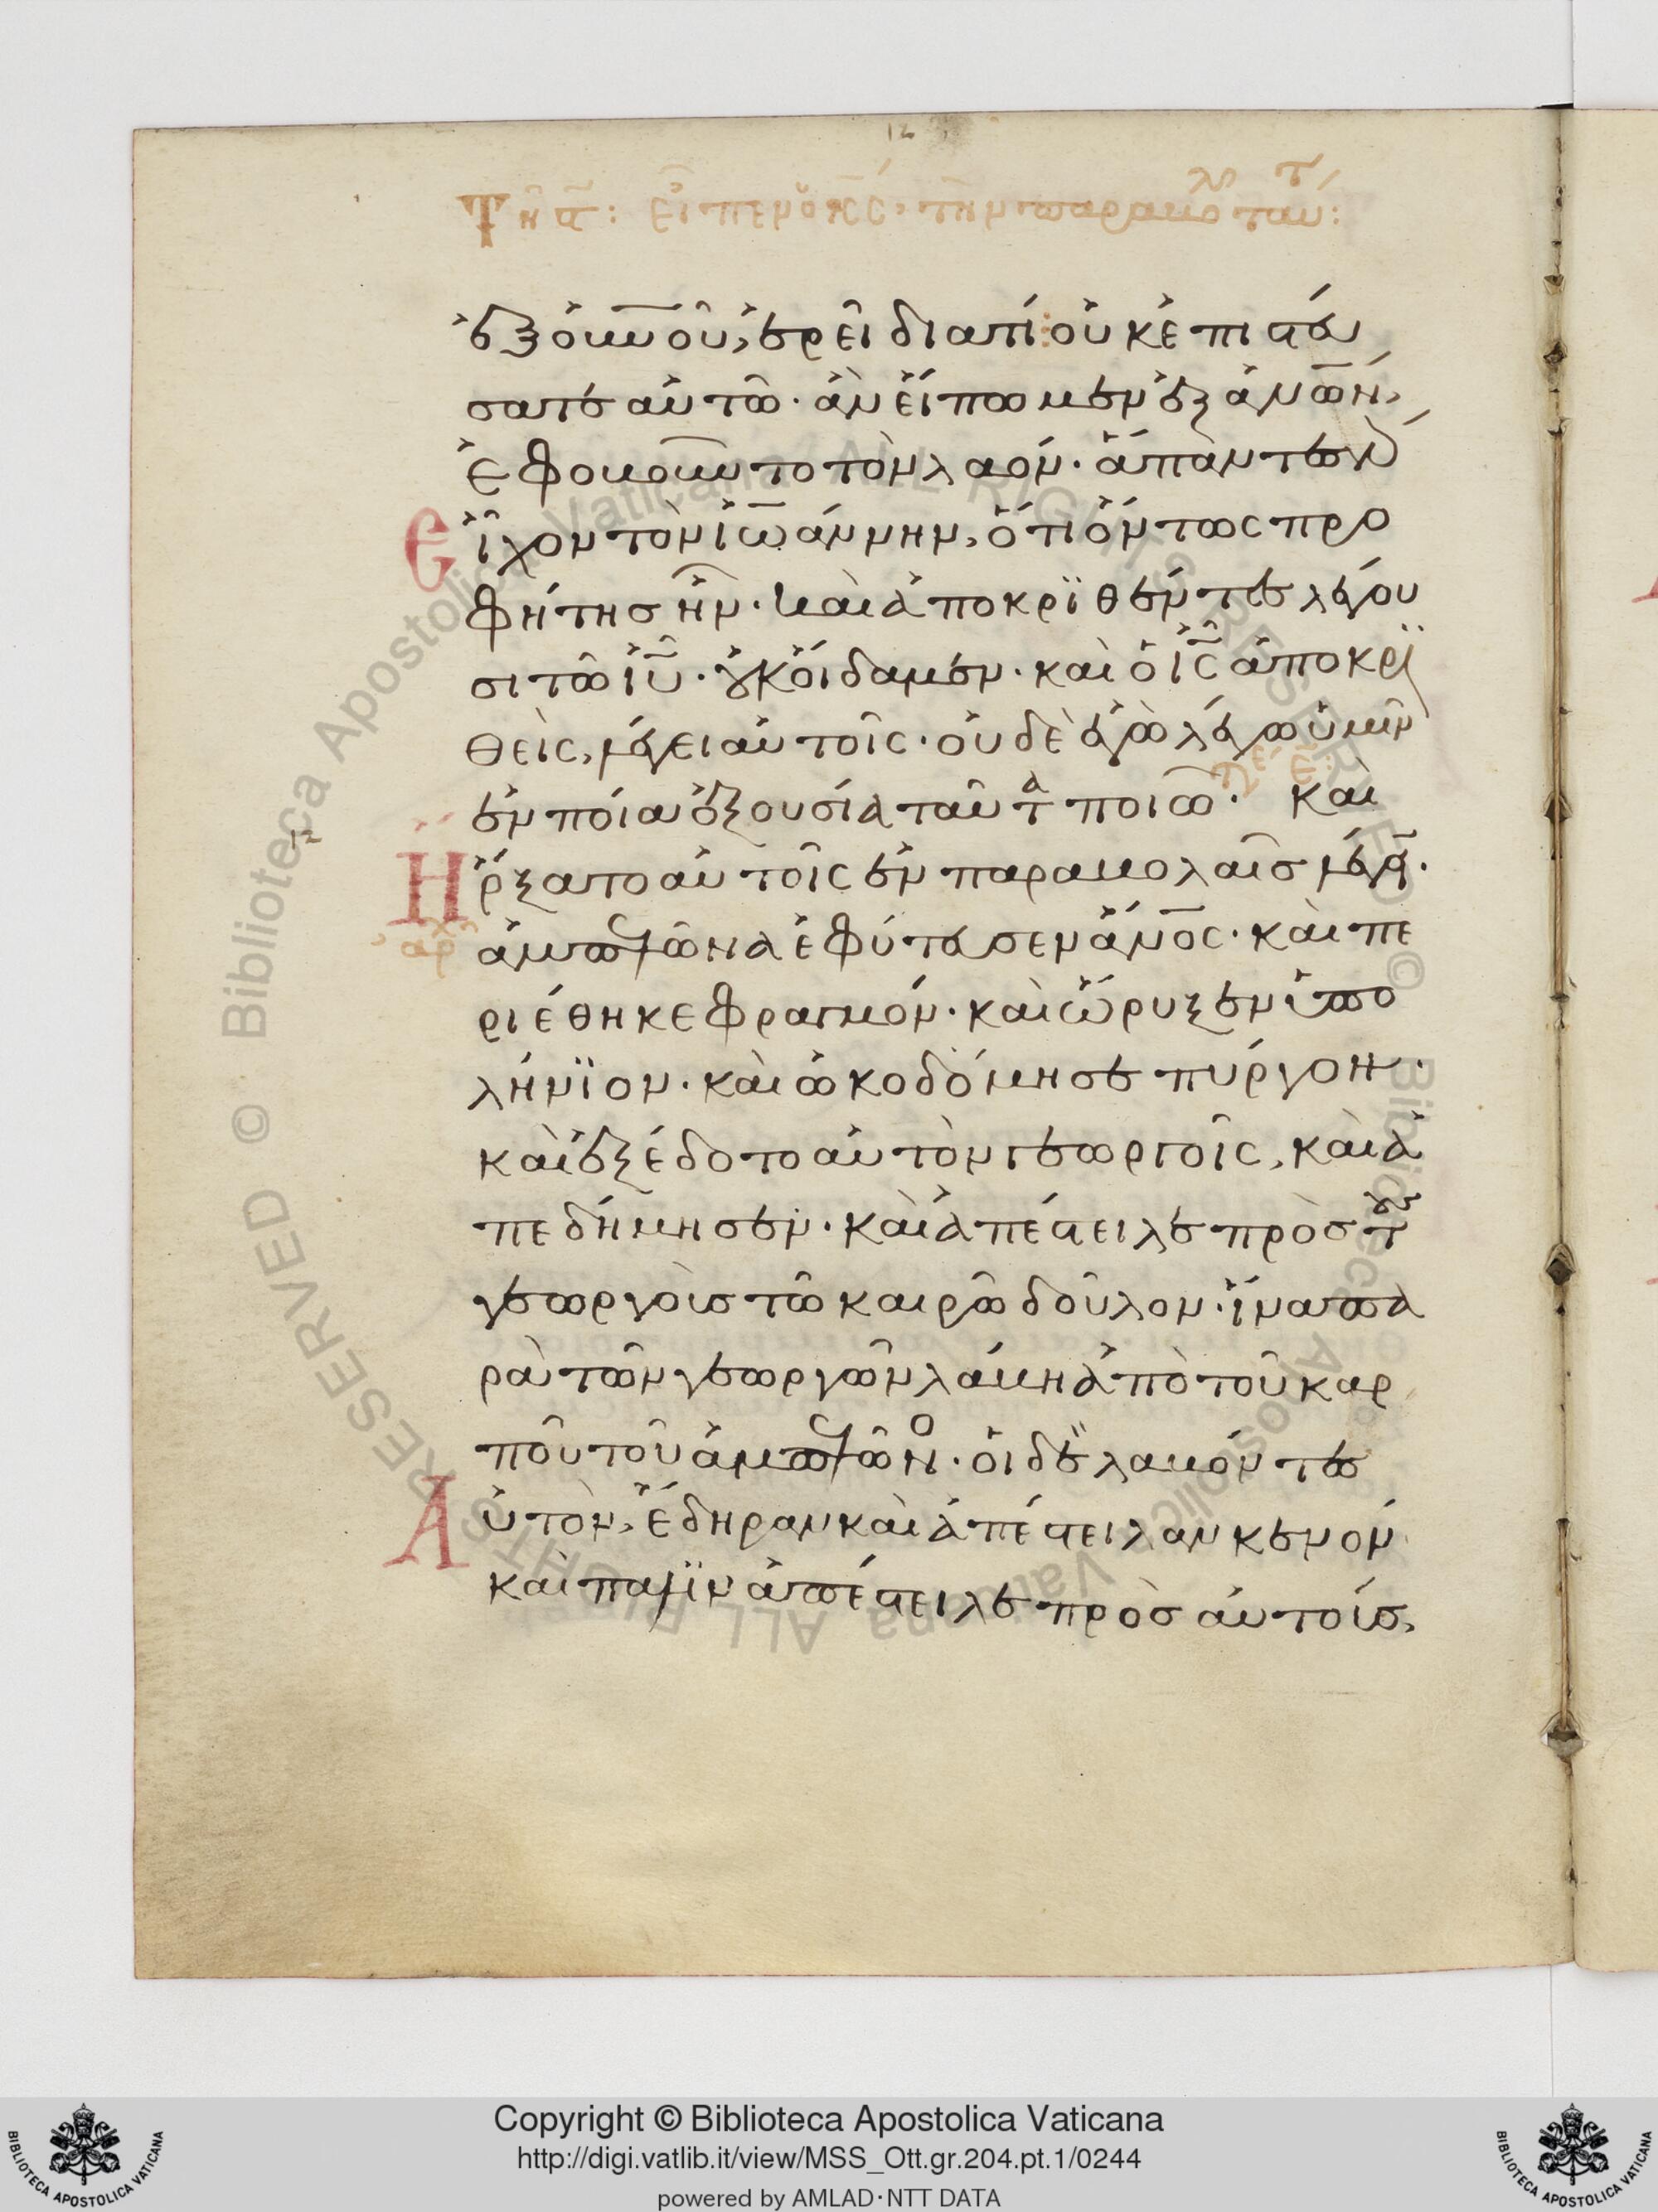 Τῆ Δ: εἶπεν ὁ κς, τὴν παραβολ ταύτ:
ἐξ οὐνοῦ, ἐρεῖ διατί οὐκ ἐπιστεύ
σατε αὐτῶ· ἀλλ' εἴπωμεν ἐξ ἀνων,
ἐφοβοῦντο τὸν λαόν· ἅπαντες γὰρ
εἶχον τὸν ἰωάννην, ὅτι ὄντως προ
φήτης ἦν· καὶ ἀποκριθέντες λέγου
σι τῶ ιυ· οὐκ οἴδαμεν· καὶ ὁ ις ἀποκρι
θεὶς, λέγει αὐτοῖς· οὐδὲ ἐγὼ λέγω ὑμῖν
ἐν ποία ἐξουσία ταῦτα ποιῶ· Καὶ
ἤρξατο αὐτοῖς ἐν παραβολαῖς λέγειν·
ἀμπελῶνα ἐφύτευσεν ἄνος· καὶ πε
ριέθηκε φραγμόν· καὶ ὤρυξεν ὑπο
λήνϊον· καὶ ὠκοδόμησε πύργον·
καὶ ἐξέδοτο αὐτὸν γεωργοῖς, καὶ ἀ
πεδήμησεν· καὶ ἀπέστειλε πρὸς τοὺς
γεωργοὺς τῶ καιρῶ δοῦλον· ἵνα πα
ρὰ τῶν γεωργῶν λάβη ἀπὸ τοῦ καρ
ποῦ τοῦ ἀμπελῶνο· οἱ δὲ λαβόντες
αὐτὸν, ἔδηραν καὶ ἀπέστειλαν κενόν
καὶ πάλιν ἀπέστειλε πρὸς αὐτοὺς,
Copyright © Biblioteca Apostolica Vaticana
http://digi.vatlib.it/view/MSS_Ott.gr.204.pt.1/0244
powered by AMLAD·NTT DATA
BIBLIOTECA APOSTOLICA VATICANA
BIBLIOTECA APOSTOLICA VATICANA